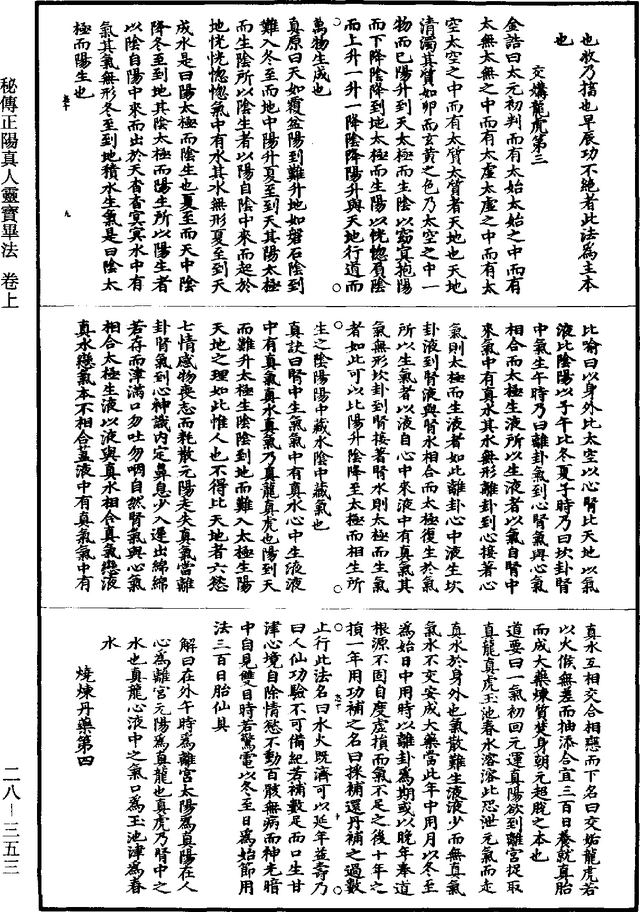 也收乃揞也早晨功不絕者此法為主本
也
交媾龍虎第三
金誥曰太元初判而有太始太始之中而有
太無太無之中而有太虛太虛之中而有太
空太空之中而有太質太質者天地也天地
清濁其質如卵而玄黃之色乃太空之中一
物而已陽升到天太極而生陰以窈冥抱陽
而下降陰降到地太極而生陽以恍惚負陰
而上升一升一降陰降陽升與天地行道而
萬物生成也
真原曰天如覆盆陽到難升地如磐石陰到
難入冬至而地中陽升夏至到天其陽太極
而生陰所以陰生者以陽自陰中來而起於
地恍恍惚惚氣中有水其水無形夏至到天
成水是曰陽太極而陰生也夏至而天中陰
降冬至到地其陰太極而陽生所以陽生者
以陰自陽中來而出於天杳杳冥冥水中有
氣其氣無形冬至到地積水生氣是曰陰太
極而陽生也
比喻曰以身外比太空以心腎比天地以氣
液比陰陽以子午比冬夏子時乃曰坎卦腎
中氣生午時乃曰離卦氣到心腎氣與心氣
相合而太極生液所以生液者以氣自腎中
來氣中有真水其水無形離卦到心接著心
氣則太極而生液者如此離卦心中液生坎
卦液到腎液與腎水相合而太極復生於氣
所以生氣者以液自心中來液中有真氣其
氣無形坎卦到腎接著腎水則太極而生氣
者如此可以比陽升陰降至太極而相生所
生之陰陽陽中藏水陰中藏氣也
真訣曰腎中生氣氣中有真水心中生液液
中有真氣真水真氣乃真龍真虎也陽到天
而難升太極生陰陰到地而難入太極生陽
天地之理如此惟人也不得比天地者六慾
七情感物喪志而耗散元陽走失真氣當離
卦腎氣到心神識內定鼻息少入遲出綿綿
若存而津滿口勿吐勿咽自然腎氣與心氣
相合太極生液以液與真水相合真氣戀液
真水戀氣本不相合蓋液中有真氣氣中有
真水互相交合相戀而下名曰交姤龍虎若
以火候無差而抽添合宜三百日養就真胎
而成大藥煉質焚身朝元超脫之本也
道要曰一氣初回元運真陽欲到離宮捉取
真龍真虎玉池春水溶溶此恐泄元氣而走
真水於身外也氣散難生液液少而無真氣
氣水不交安成大藥當此年中用月以冬至
為始日中用時以離卦為期或以晚年奉道
根源不固自度虛損而氣不足之後十年之
損一年用功補之名曰採補還丹補之過數
止行此法名曰水火既濟可以延年益壽乃
曰人仙功驗不可備紀若補數足而口生甘
津心境自除情慾不動百骸無病而神光暗
中自見雙目時若驚電以冬至日為始節用
法三百日胎仙具
解曰在外午時為離宮太陽為真陽在人
心為離宮元陽為真龍也真虎乃腎中之
水也真龍心液中之氣口為玉池津為春
水
燒煉丹藥第四
秘傳正陽真人靈寶畢法 卷上
二八-三五三